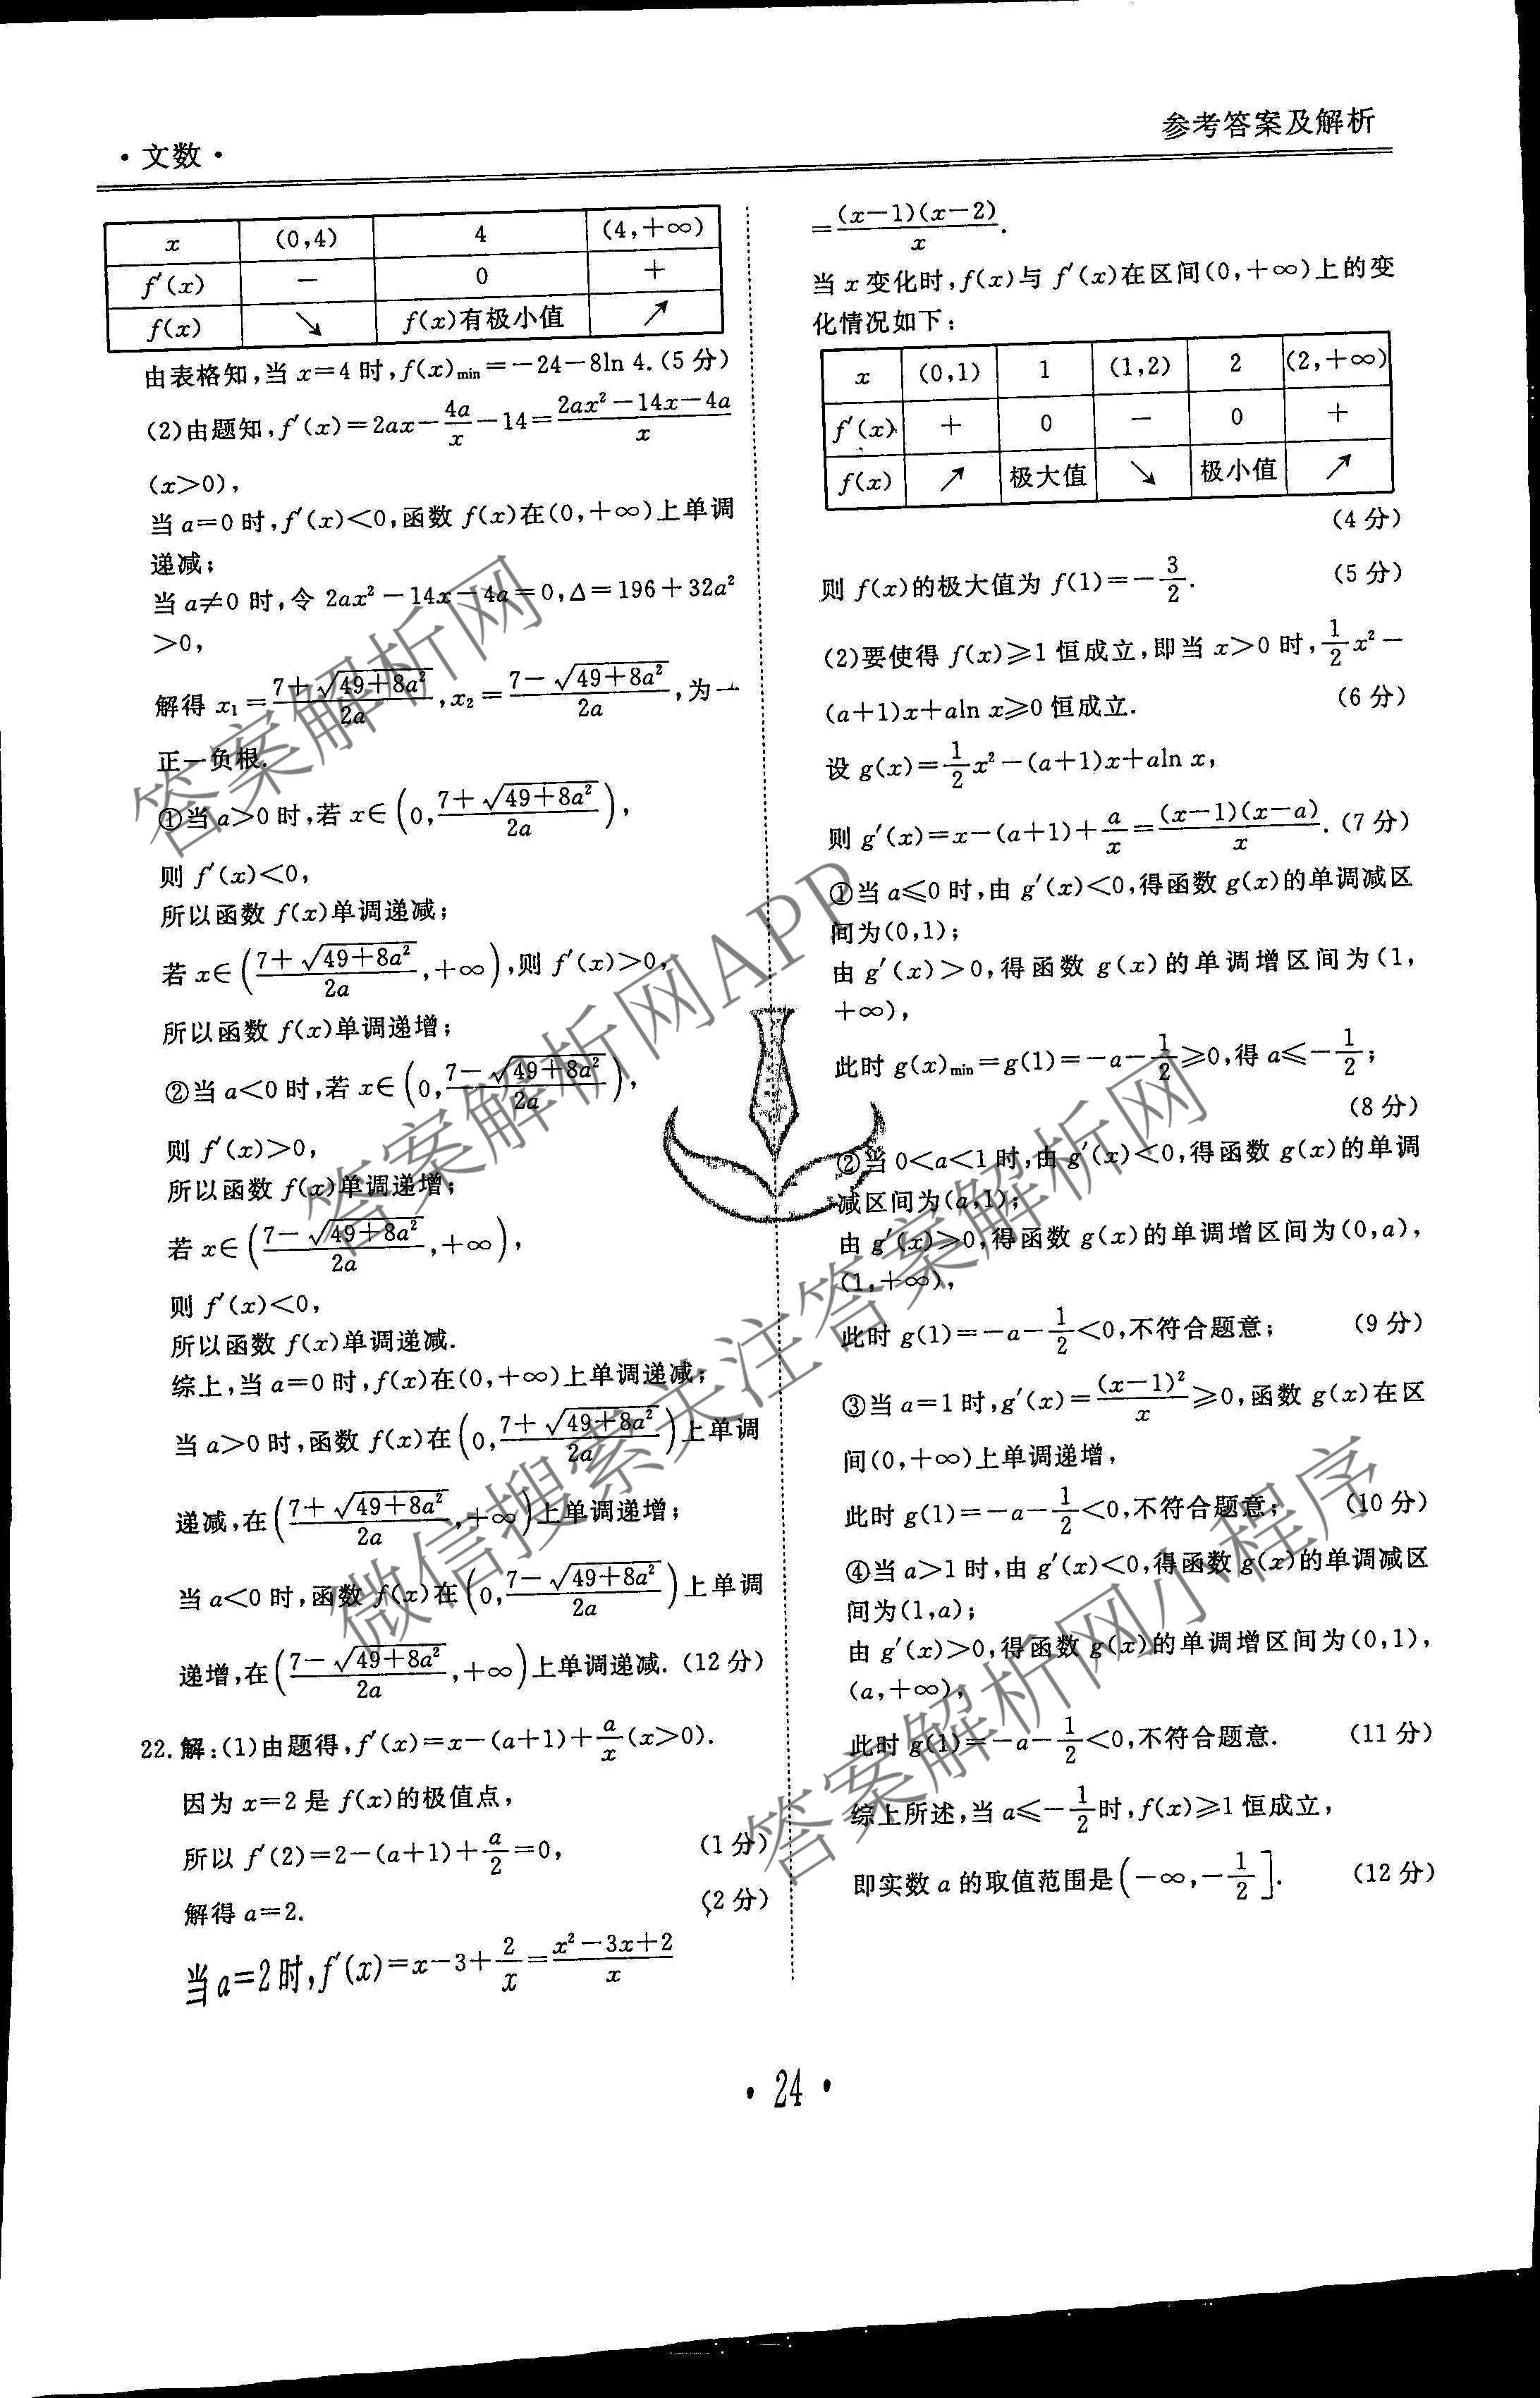 ·文数·
参考答案及解析
x (0,4) 4 (4,+∞)
f′(x) − 0 +
f(x) ↘ f(x)有极小值 ↗
由表格知,当 x=4 时,f(x)min=−24−8ln 4.(5 分)
(2)由题知,f′(x)=2ax−4a/x−14=(2ax²−14x−4a)/x
(x>0),
当 a=0 时,f′(x)<0,函数 f(x)在(0,+∞)上单调
递减;
当 a≠0 时,令 2ax²−14x−4a=0,Δ=196+32a²
>0,
解得 x₁=(7+√(49+8a²))/2a,x₂=(7−√(49+8a²))/2a,为一
正一负根.
①当 a>0 时,若 x∈(0,(7+√(49+8a²))/2a),
则 f′(x)<0,
所以函数 f(x)单调递减;
若 x∈((7+√(49+8a²))/2a,+∞),则 f′(x)>0,
所以函数 f(x)单调递增;
②当 a<0 时,若 x∈(0,(7−√(49+8a²))/2a),
则 f′(x)>0,
所以函数 f(x)单调递增;
若 x∈((7−√(49+8a²))/2a,+∞),
则 f′(x)<0,
所以函数 f(x)单调递减.
综上,当 a=0 时,f(x)在(0,+∞)上单调递减;
当 a>0 时,函数 f(x)在(0,(7+√(49+8a²))/2a)上单调
递减,在((7+√(49+8a²))/2a,+∞)上单调递增;
当 a<0 时,函数 f(x)在(0,(7−√(49+8a²))/2a)上单调
递增,在((7−√(49+8a²))/2a,+∞)上单调递减.(12 分)
22.解:(1)由题得,f′(x)=x−(a+1)+a/x(x>0).
因为 x=2 是 f(x)的极值点,
所以 f′(2)=2−(a+1)+a/2=0, (1 分)
解得 a=2. (2 分)
当 a=2 时,f′(x)=x−3+2/x=(x²−3x+2)/x
=(x−1)(x−2)/x.
当 x 变化时,f(x)与 f′(x)在区间(0,+∞)上的变
化情况如下:
x (0,1) 1 (1,2) 2 (2,+∞)
f′(x) + 0 − 0 +
f(x) ↗ 极大值 ↘ 极小值 ↗
(4 分)
则 f(x)的极大值为 f(1)=−3/2. (5 分)
(2)要使得 f(x)≥1 恒成立,即当 x>0 时,1/2x²−
(a+1)x+aln x≥0 恒成立. (6 分)
设 g(x)=1/2x²−(a+1)x+aln x,
则 g′(x)=x−(a+1)+a/x=(x−1)(x−a)/x.(7 分)
①当 a≤0 时,由 g′(x)<0,得函数 g(x)的单调减区
间为(0,1);
由 g′(x)>0,得函数 g(x)的单调增区间为(1,
+∞),
此时 g(x)min=g(1)=−a−1/2≥0,得 a≤−1/2;
(8 分)
②当 0<a<1 时,由 g′(x)<0,得函数 g(x)的单调
减区间为(a,1);
由 g′(x)>0,得函数 g(x)的单调增区间为(0,a),
(1,+∞),
此时 g(1)=−a−1/2<0,不符合题意; (9 分)
③当 a=1 时,g′(x)=(x−1)²/x≥0,函数 g(x)在区
间(0,+∞)上单调递增,
此时 g(1)=−a−1/2<0,不符合题意; (10 分)
④当 a>1 时,由 g′(x)<0,得函数 g(x)的单调减区
间为(1,a);
由 g′(x)>0,得函数 g(x)的单调增区间为(0,1),
(a,+∞),
此时 g(1)=−a−1/2<0,不符合题意. (11 分)
综上所述,当 a≤−1/2时,f(x)≥1 恒成立,
即实数 a 的取值范围是(−∞,−1/2]. (12 分)
·24·
答案解析网
答案解析网APP
微信搜索关注答案解析网
答案解析网小程序